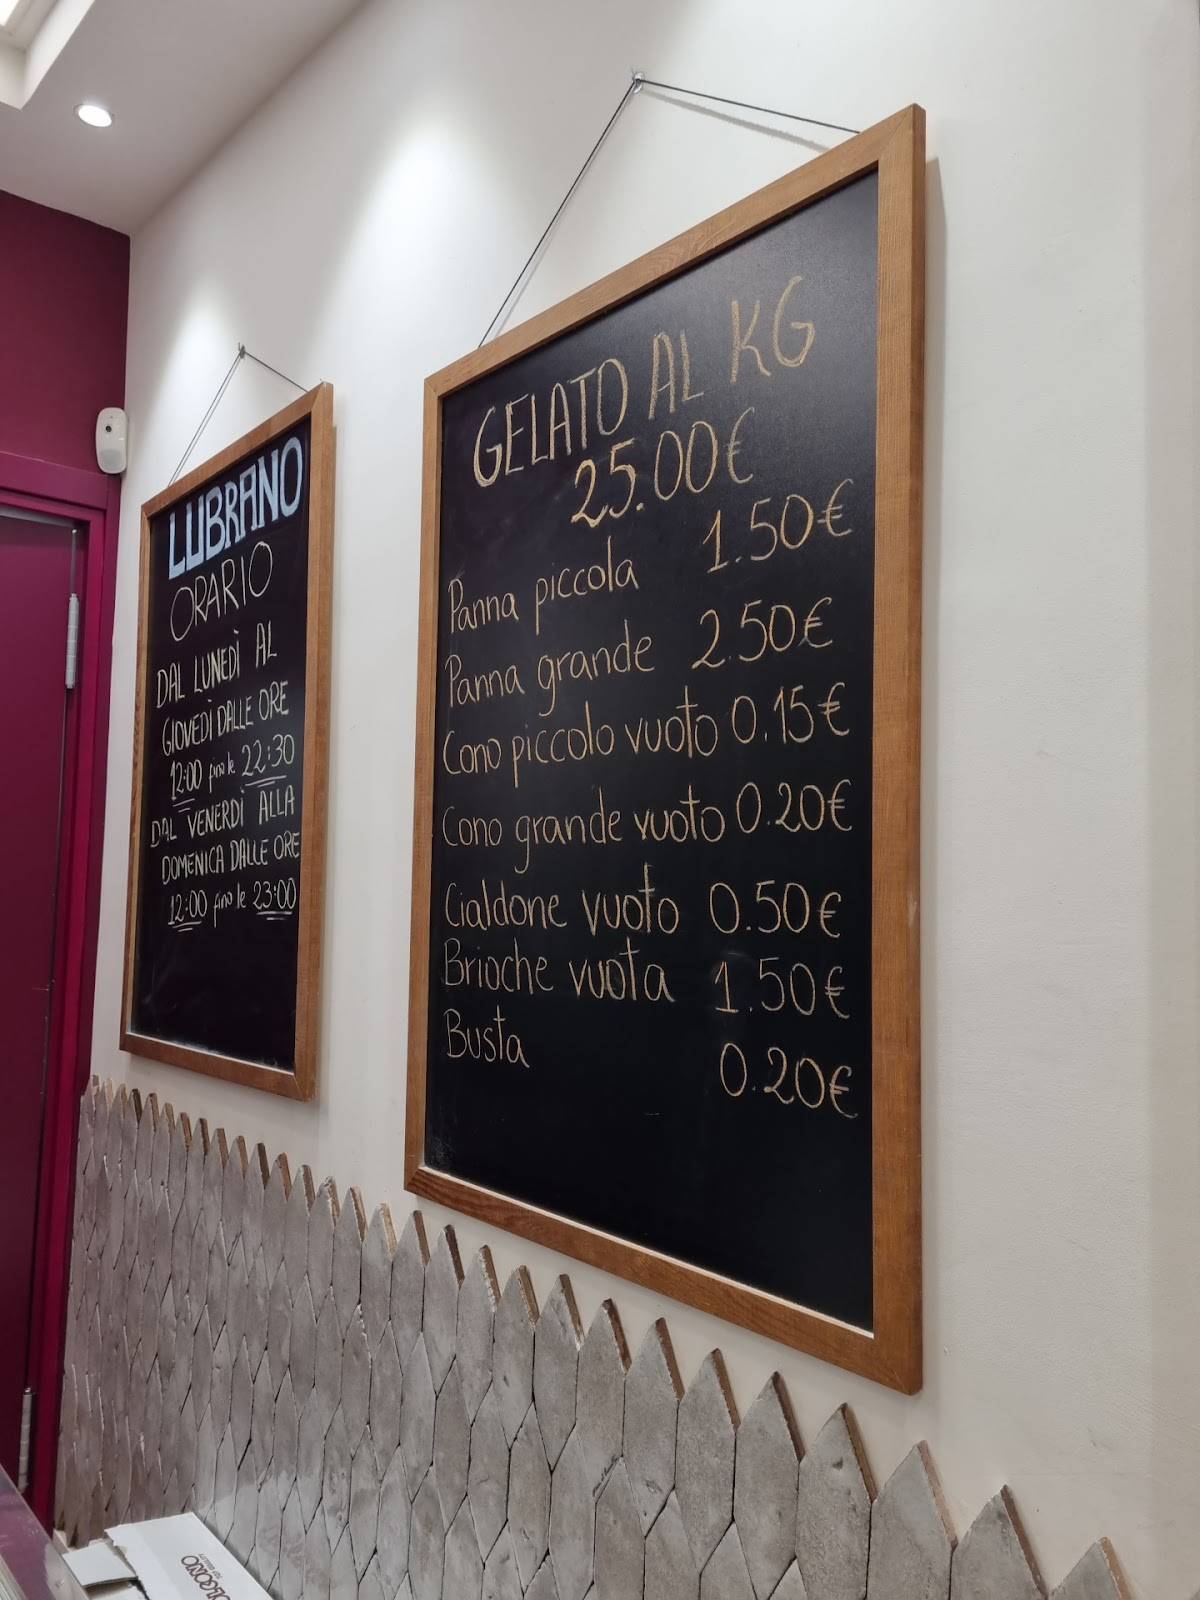 LUBRANO
ORARIO
DAL LUNEDÌ AL
GIOVEDÌ DALLE ORE
12:00 fino le 22:30
DAL VENERDÌ ALLA
DOMENICA DALLE ORE
12:00 fino le 23:00
GELATO AL KG
25.00€
Panna piccola 1.50€
Panna grande 2.50€
Cono piccolo vuoto 0.15€
Cono grande vuoto 0.20€
Cialdone vuoto 0.50€
Brioche vuota 1.50€
Busta 0.20€